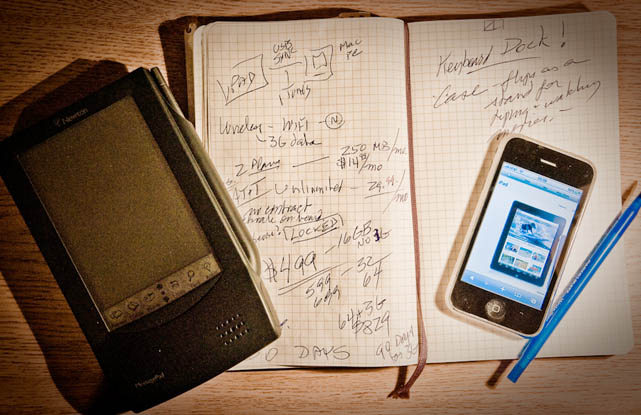 Newton
MessagePad
iPAD
USB
SYNC
iTunes
MAC
PC
Wireless - WiFi - N
3G data
2 Plans — 250 MB/mo
$14.99/mo
AT&T Unlimited - 29.99/mo
no contract
LOCKED
$499 - 16GB
NO 3G
599 - 32
699 64
64+3G
$829
DAYS
90 Days
Keyboard Dock!
Case flips as a
stand for
typing + watching
movies.
iPad